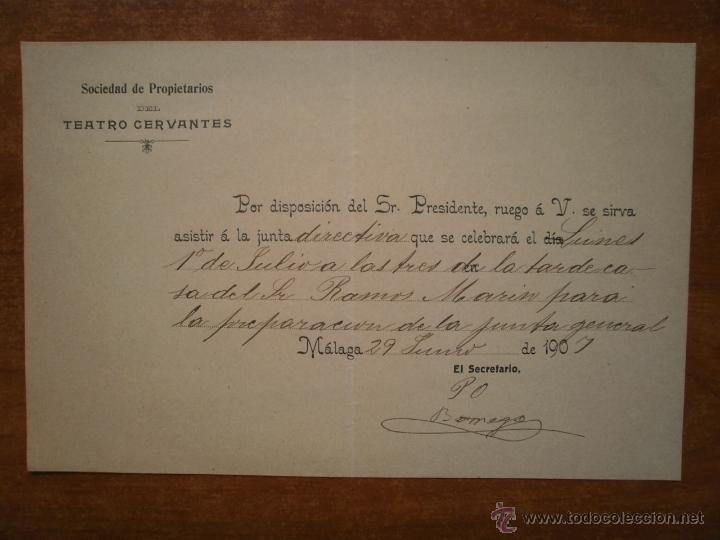 Sociedad de Propietarios
DEL
TEATRO CERVANTES
Por disposición del Sr. Presidente, ruego á V. se sirva
asistir á la junta directiva que se celebrará el día Lunes
1º de Julio a las tres de la tarde ca-
sa del Sr Ramos Marin para
la preparacion de la junta general
Málaga 29 Junio de 1907
El Secretario,
PO
Borrego
www.todocoleccion.net